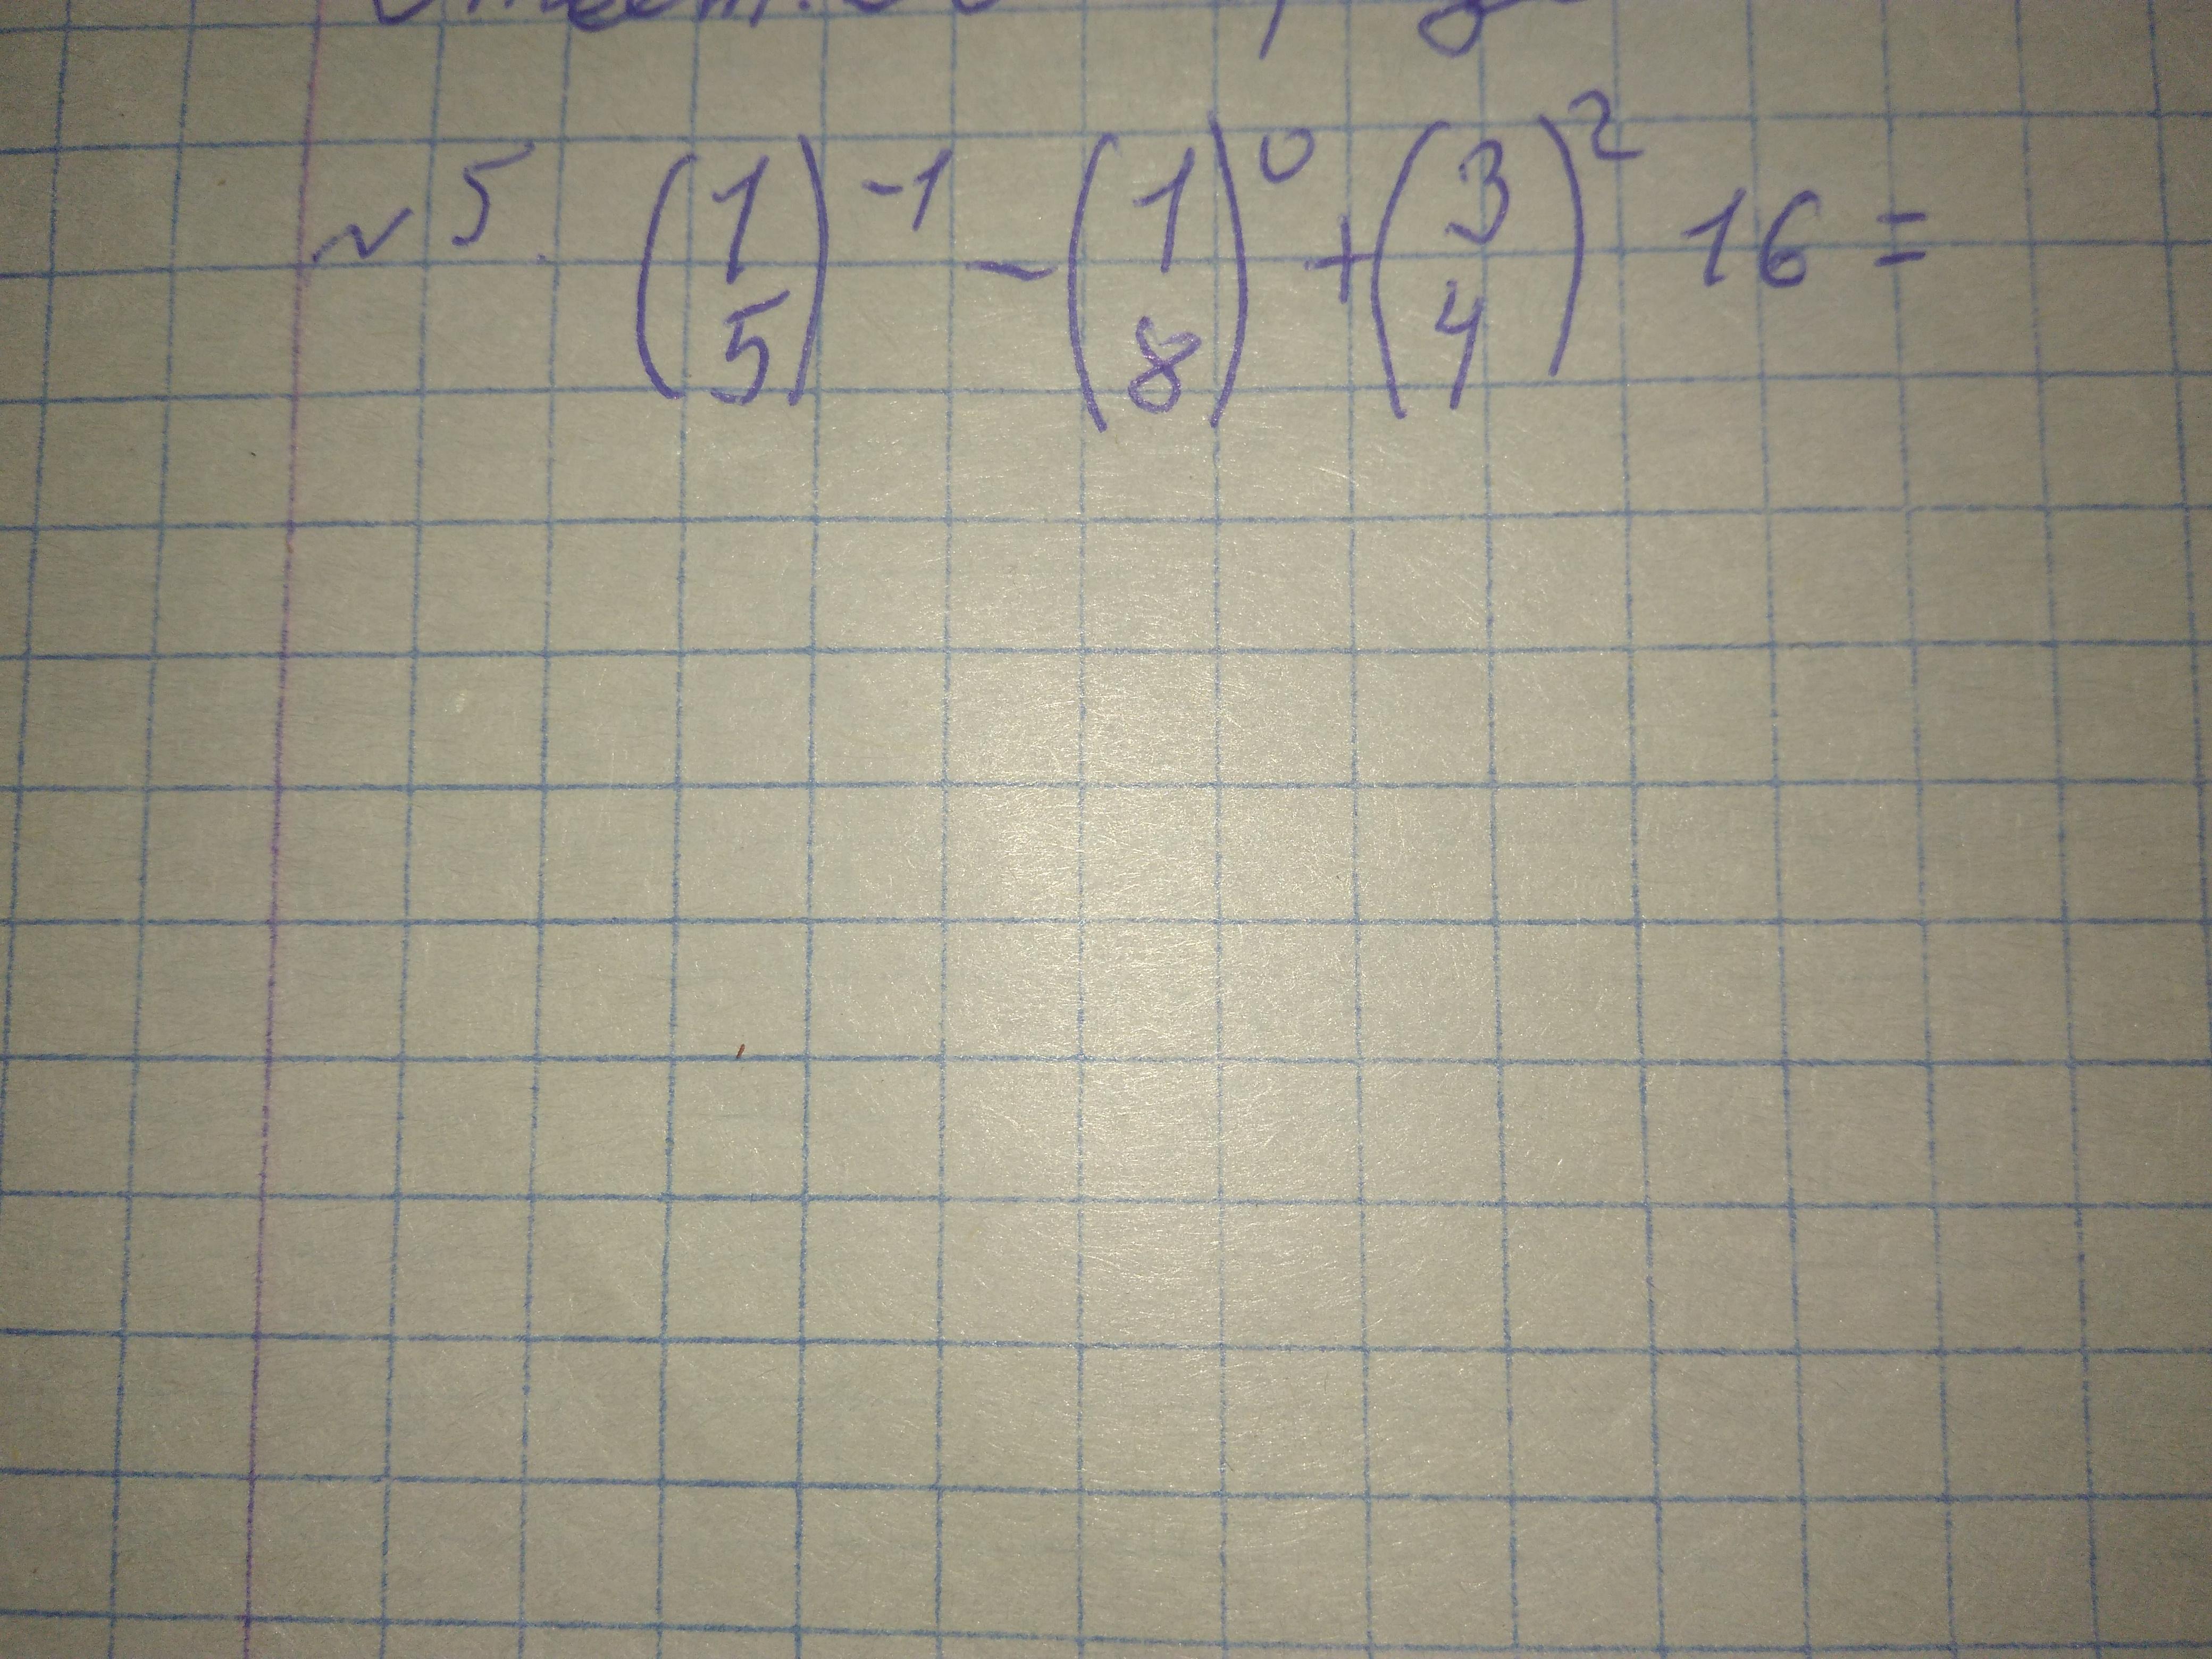 №5. (1/5)^-1 - (1/8)^0 + (3/4)^2 16 =